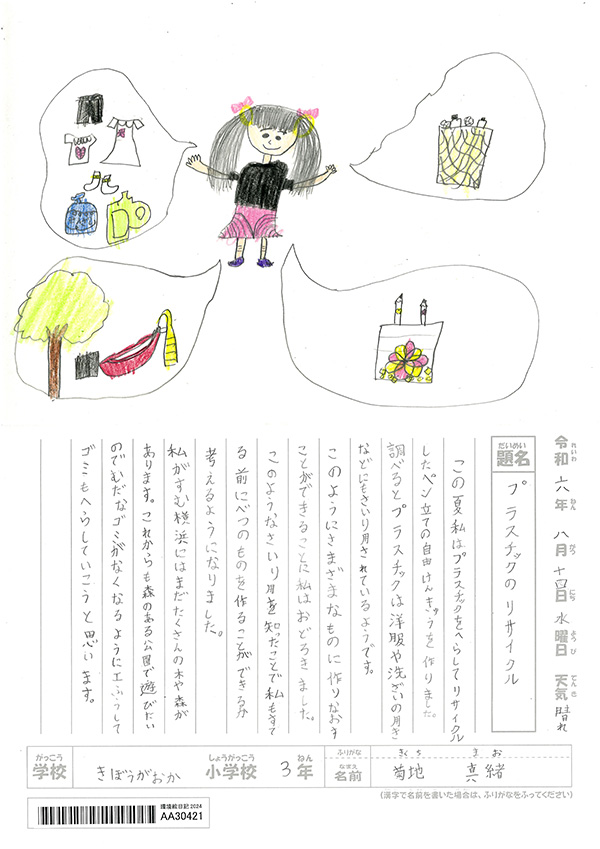 令和六年 八月十四日 水曜日 天気 晴れ
れいわ ねん がつ にち ようび てんき
だいめい
題名 プラスチックのリサイクル
この夏私はプラスチックをへらしてリサイクル
したペン立ての自由けんきゅうを作りました。
調べるとプラスチックは洋服や洗ざいの用き
などにもさいり用されているようです。
このようにさまざまなものに作りなおす
ことができることに私はおどろきました。
このようなさいり用を知ったことで私もすて
る前にべつのものを作ることができるか
考えるようになりました。
私がすむ横浜にはまだたくさんの木や森が
あります。これからも森のある公園で遊びたい
のでむだなゴミがなくなるように工ふうして
ゴミもへらしていこうと思います。
がっこう しょうがっこう ねん ふりがな きくち まお
学校 きぼうがおか 小学校 3年 なまえ 名前 菊地 真緒
(漢字で名前を書いた場合は、ふりがなをふってください)
環境絵日記 2024
AA30421